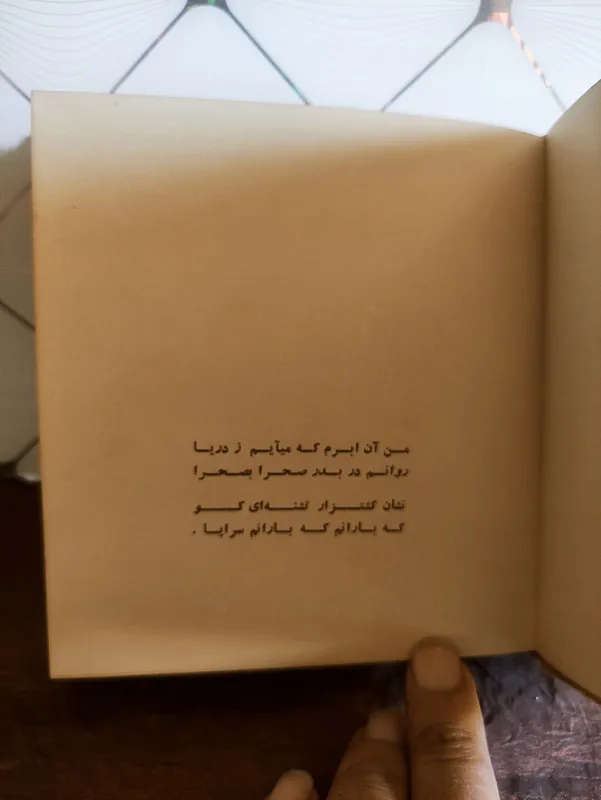 من آن ابرم که میآیم ز دریا
روانم در بدر صحرا بصحرا
نشان کشتزار تشنه‌ای کو
که بارانم که بارانم سراپا .